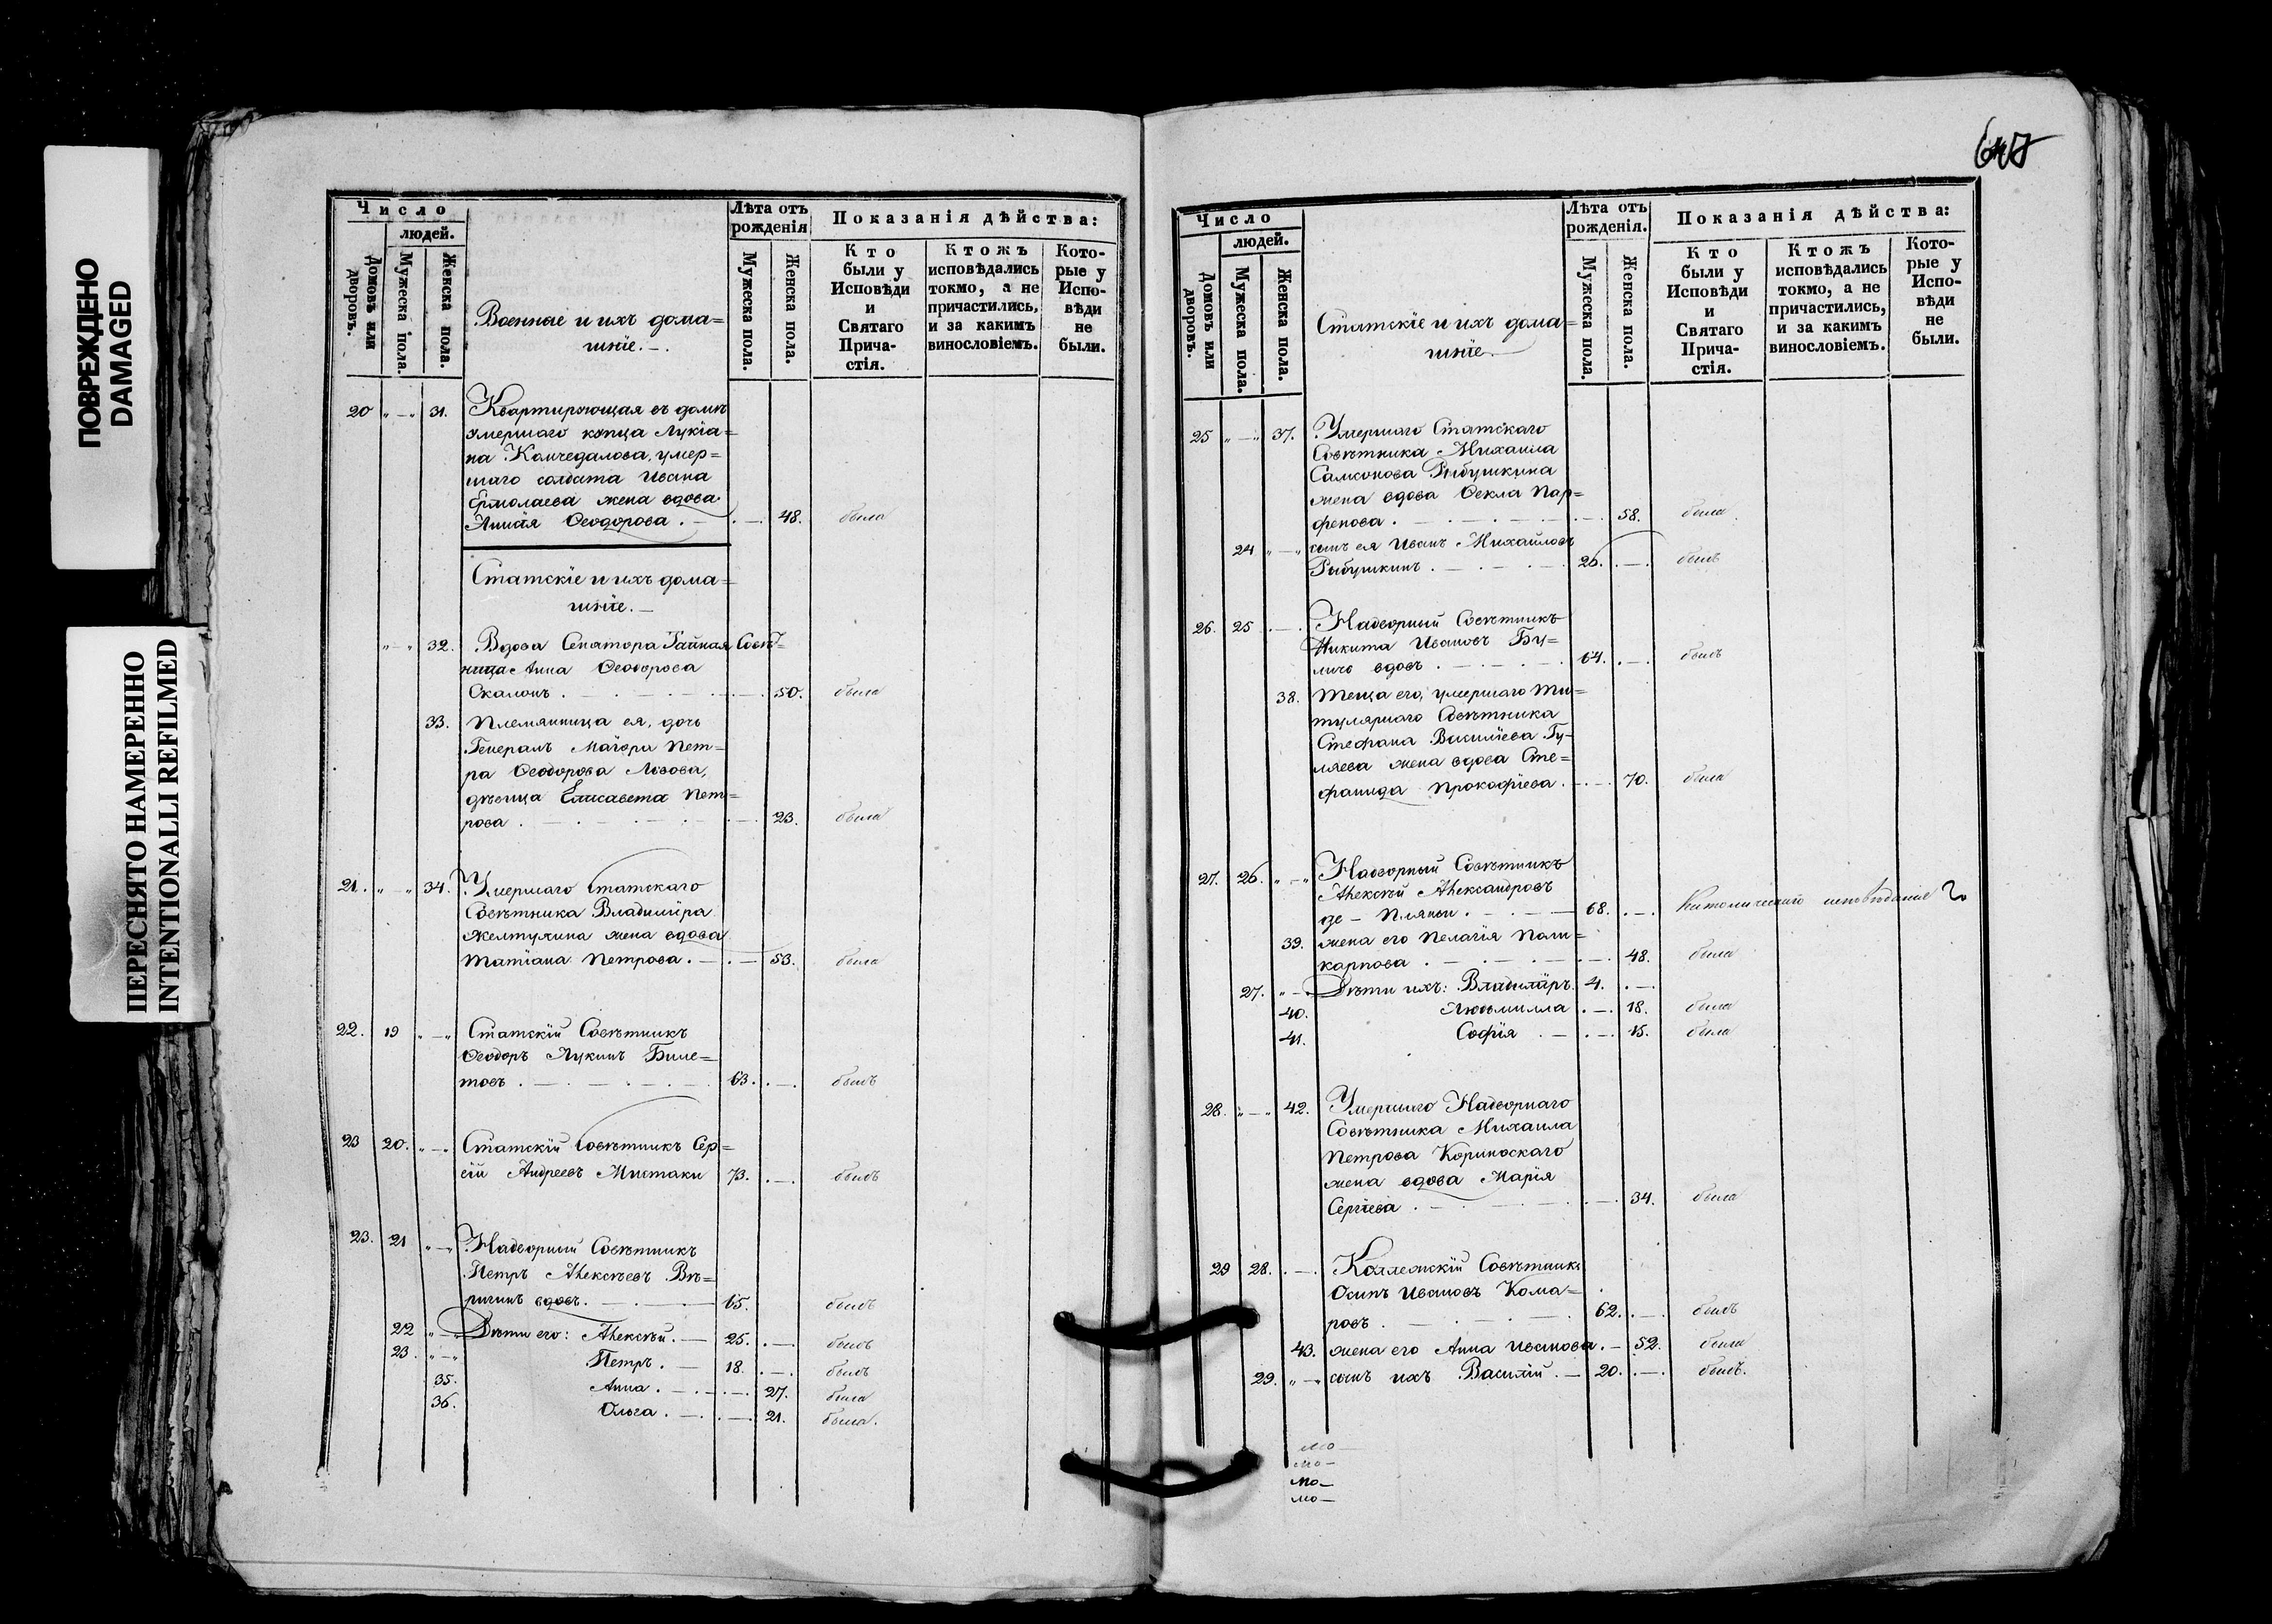 ПОВРЕЖДЕНО
DAMAGED
ПЕРЕСНЯТО НАМЕРЕННО
INTENTIONALLI REFILMED
Число
людей.
Домовъ или дворовъ.
Мужеска пола.
Женска пола.
Военные и ихъ дома=
шніе.
Лѣта отъ
рожденія
Мужеска пола.
Женска пола.
Показанія дѣйства:
Кто
были у
Исповѣди
и
Святаго
Прича-
стія.
Ктожъ
исповѣдались
токмо, а не
причастились,
и за какимъ
винословіемъ.
Кото-
рые у
Испо-
вѣди
не
были.
20 „—„ 31. Квартирующая въ домѣ
умершаго купца Лукіа=
на Комчедалова, умер=
шаго солдата Ивана
Ермолаева жена вдова
Анна Ѳеодорова . — . — 48. была
Статскіе и ихъ дома=
шніе. —
„—„ 32. Вдова Сенатора Тайная Совѣт=
ница Анна Ѳеодорова
Скалонъ . — 50. была
33. Племянница ея, дочь
Генералъ Маіора Пет=
ра Ѳеодорова Львова,
дѣвица Елисавета Пет=
рова . — 23. была
21. „—„ 34. Умершаго Статскаго
Совѣтника Владиміра
Желтухина жена вдова
Татіана Петрова . — . — 53. была
22. 19 „—„ Статскій Совѣтникъ
Ѳеодоръ Лукинъ Биле=
товъ . — 63. . — . былъ
23 20. „—„ Статскій Совѣтникъ Сер=
гій Андреевъ Мистаки 73. . — . былъ
23. 21 „—„ Надворный Совѣтникъ
Петръ Алексѣевъ Вѣ=
ригинъ вдовъ. — 65. былъ
22 „—„ Дѣти его: Алексѣй. — 25. . — . былъ
23. „—„ Петръ. — 18. . — . былъ
35. Анна. — . — 27. была
36. Ольга. — . — 21. была.
Число
людей.
Домовъ или дворовъ.
Мужеска пола.
Женска пола.
Статскіе и ихъ дома=
шніе.
Лѣта отъ
рожденія.
Мужеска пола.
Женска пола.
Показанія дѣйства:
Кто
были у
Исповѣди
и
Святаго
Прича-
стія.
Ктожъ
исповѣдались
токмо, а не
причастились,
и за какимъ
винословіемъ.
Кото-
рые у
Испо-
вѣди
не
были.
25 „—„ 37. Умершаго Статскаго
Совѣтника Михаила
Самсонова Рыбушкина
жена вдова Ѳекла Пар=
фенова . — 58. была
24 „—„ сынъ ея Иванъ Михайловъ
Рыбушкинъ . — 26. . — . былъ
26. 25 . — . Надворный Совѣтникъ
Никита Ивановъ Бу=
личъ вдовъ . — 64. . — . былъ
38. Теща его, умершаго Ти=
тулярнаго Совѣтника
Стефана Василіева Гу=
ляева жена вдова Сте=
фанида Прокофіева . — 70. была
27. 26. „—„ Надворный Совѣтникъ
Алексѣй Александровъ
де-Пляньи . — 68. . — . Католическаго исповѣданія
39. жена его Пелагія Поли=
карпова . — 48. была
27. „—„ Дѣти ихъ: Владиміръ. 4. . — .
40. Людмилла . — 18. была
41. Софія . — . — 15. была
28. „—„ 42. Умершаго Надворнаго
Совѣтника Михаила
Петрова Коринѳскаго
жена вдова Марія
Сергіева . — 34. была
29 28. . — . Коллежскій Совѣтникъ
Осипъ Ивановъ Кома=
ровъ . — 62. . — . былъ
43. жена его Анна Иванова. — 52. была
29. „—„ сынъ ихъ Василій. — 20. . — . былъ.
мо—
мо—
мо—
мо—